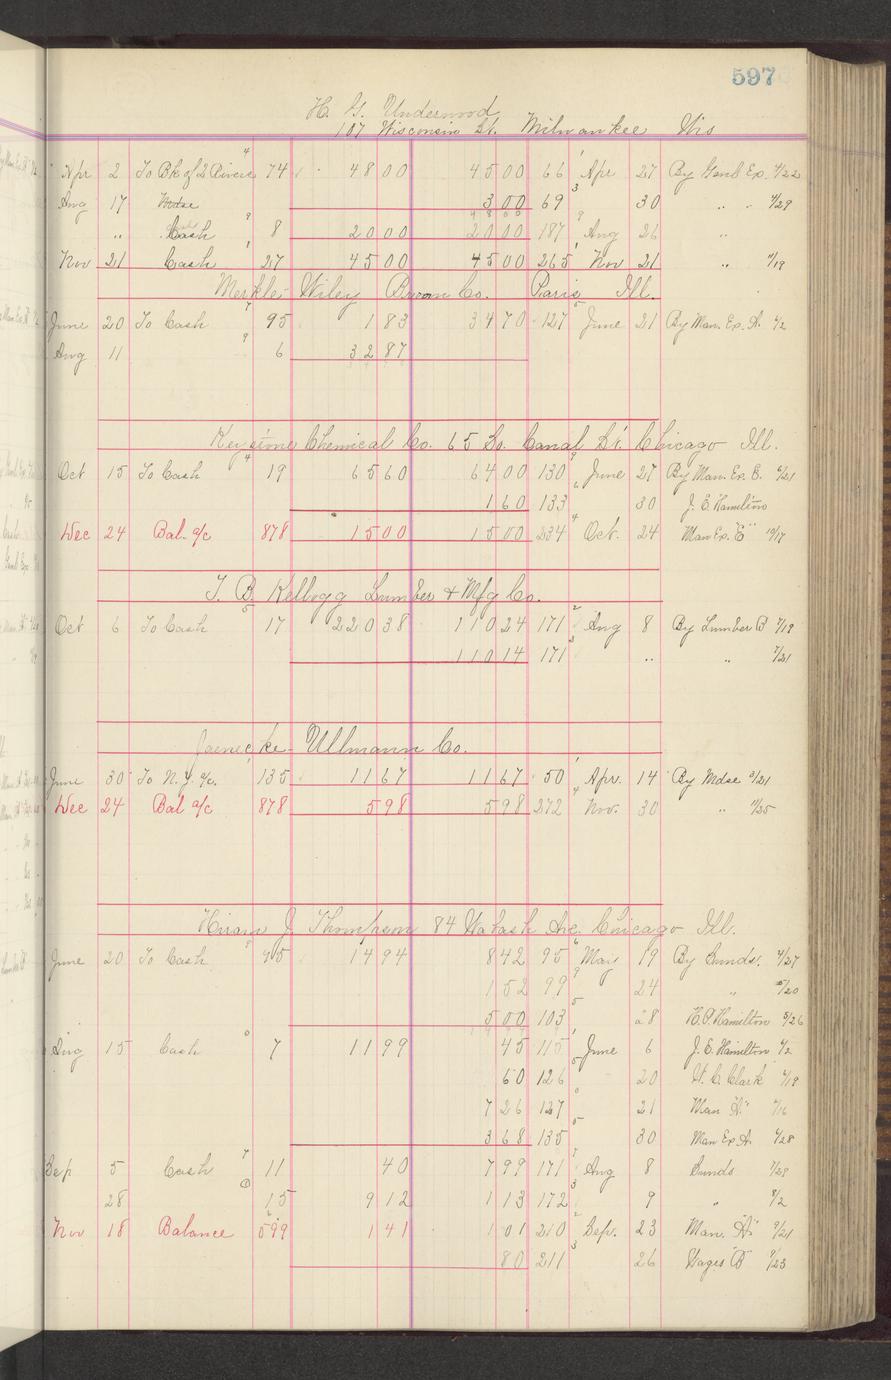 597
H. G. Underwood
107 Wisconsin St. Milwaukee Wis
Apr 2 To Bk of 2 Rivers 4 74 4800 4500 66 1 Apr 27 By Genl Ex. 4/22
Aug 17 300 69 3 30 " " 4/29
4800
" Cash 9 8 2000 2000 187 9 Aug 26 "
Nov 21 Cash 1 27 4500 4500 265 1 Nov 21 " 11/19
Merkle-Wiley Broom Co. Paris Ill.
June 20 To Cash 7 95 183 3470 127 5 June 21 By Man. Ex. A. 6/2
Aug 11 9 6 3287
Keystone Chemical Co. 65 So. Canal St. Chicago Ill.
Oct 15 To Cash 4 19 6560 6400 130 9 June 27 By Man. Ex. E. 6/21
160 133 6 30 J. E. Hamilton
Dec 24 Bal. a/c 878 1500 1500 234 4 Oct. 24 Man Ex. "E" 10/17
T. B. Kellogg Lumber & Mfg Co.
Oct 6 To Cash 5 17 22038 11024 171 2 Aug 8 By Lumber B 7/19
11014 171 3 " " 7/21
Jaenecke-Ullmann Co.
June 30 To N. Y. a/c. 1 135 1167 1167 50 1 Apr. 14 By Mdse 3/21
Dec 24 Bal a/c 878 598 598 272 4 Nov. 30 " 11/25
Hiram J. Thompson 84 Wabash Ave. Chicago Ill.
June 20 To Cash 8 95 1494 842 95 6 May 19 By Sunds. 4/27
152 99 9 24 " 5/20
500 103 5 28 H. P. Hamilton 5/26
Aug 15 Cash 0 7 1199 45 115 1 June 6 J. E. Hamilton 6/2
60 126 5 20 W. C. Clark 6/19
726 127 0 21 Man "A" 6/16
368 135 5 30 Man Ex A. 6/28
Sep 5 Cash 7 11 40 799 171 7 Aug 8 Sunds 7/29
28 15 912 113 172 3 9 " 8/2
Nov 18 Balance 6 599 141 101 210 2 Sep. 23 Man. "A" 9/21
80 211 3 26 Wages "B" 9/23